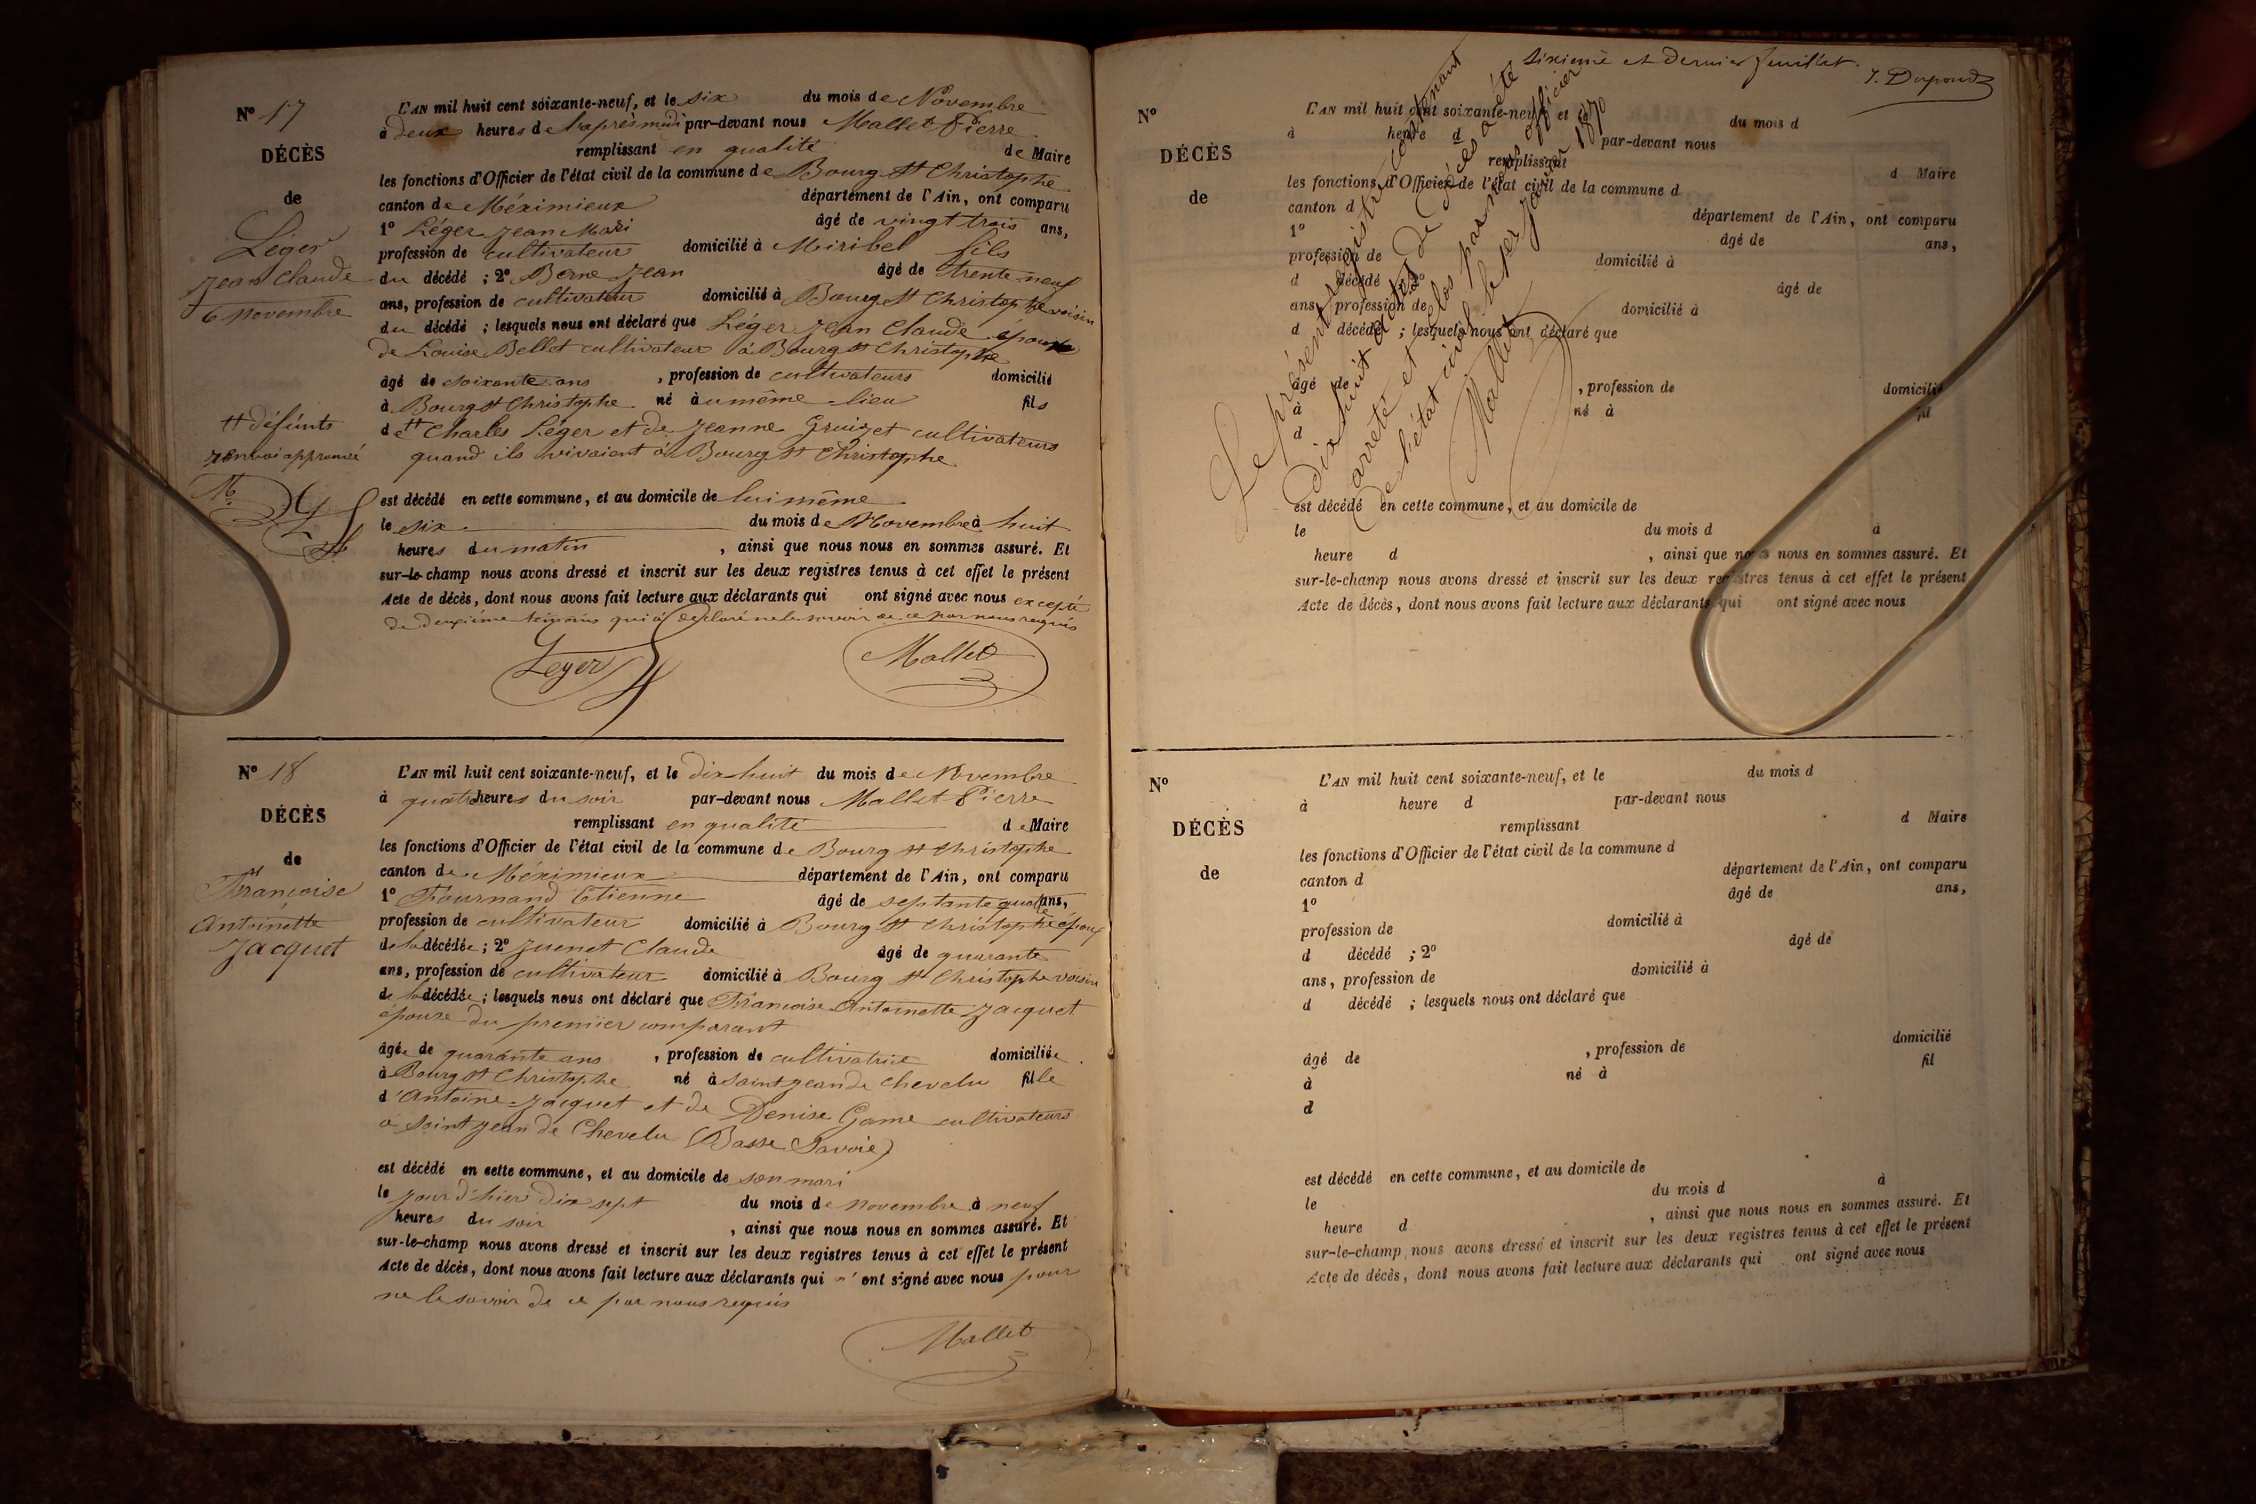 Nº 17
DÉCÈS
de
Léger
Jean Claude
6 novembre
tt défunts
renvoi approuvé
L'AN mil huit cent soixante-neuf, et le six du mois de Novembre
à deux heures de l'après midi par-devant nous Mallet Pierre
remplissant en qualité de Maire
les fonctions d'Officier de l'état civil de la commune de Bourg St Christophe
canton de Méximieux département de l'Ain, ont comparu
1º Léger Jean Mari âgé de vingt trois ans,
profession de cultivateur domicilié à Miribel fils
du décédé ; 2º Berne Jean âgé de trente neuf
ans, profession de cultivateur domicilié à Bourg St Christophe voisin
du décédé ; lesquels nous ont déclaré que Léger Jean Claude époux
de Louise Bellet cultivateur à Bourg St Christophe
âgé de soixante ans , profession de cultivateurs domicilié
à Bourg St Christophe né à u même lieu fils
de tt Charles Léger et de Jeanne Gruizet cultivateurs
quand ils vivaient à Bourg St Christophe
est décédé en cette commune, et au domicile de lui même
le six du mois de Novembre à huit
heures du matin , ainsi que nous nous en sommes assuré. Et
sur-le-champ nous avons dressé et inscrit sur les deux registres tenus à cet effet le présent
Acte de décès, dont nous avons fait lecture aux déclarants qui ont signé avec nous excepté
de deuxième témoins qui a déclaré ne le savoir de ce par nous requis
Leger Mallet
Nº 18
DÉCÈS
de
Françoise
Antoinette
Jacquet
L'AN mil huit cent soixante-neuf, et le dix huit du mois de Novembre
à quatre heures du soir par-devant nous Mallet Pierre
remplissant en qualité de Maire
les fonctions d'Officier de l'état civil de la commune de Bourg St Christophe
canton de Méximieux département de l'Ain, ont comparu
1º Fournand Etienne âgé de septante quatre ans,
profession de cultivateur domicilié à Bourg St Christophe époux
de la décédée ; 2º Juenet Claude âgé de quarante
ans, profession de cultivateur domicilié à Bourg St Christophe voisin
de la décédée ; lesquels nous ont déclaré que Françoise Antoinette Jacquet
épouse du premier comparant
âgée de quarante ans , profession de cultivatrice domiciliée
à Bourg St Christophe né à saint jean de chevelu fille
d'Antoine Jacquet et de Denise Game cultivateurs
à Saint jean de Chevelu (Basse Savoie)
est décédé en cette commune, et au domicile de son mari
le jour d'hier dix sept du mois de novembre à neuf
heures du soir , ainsi que nous nous en sommes assuré. Et
sur-le-champ nous avons dressé et inscrit sur les deux registres tenus à cet effet le présent
Acte de décès, dont nous avons fait lecture aux déclarants qui n'ont signé avec nous pour
ne le savoir de ce par nous requis
Mallet
Sixième et dernier feuillet.
J. Dupond
Le présent registre contenant
dix huit actes de décès a été
arrêté et clos par nous officier
de l'état civil le 1er Janvier 1870
Mallet
Nº
DÉCÈS
de
L'AN mil huit cent soixante-neuf, et le du mois d
à heure d par-devant nous
remplissant d Maire
les fonctions d'Officier de l'état civil de la commune d
canton d département de l'Ain, ont comparu
1º âgé de ans,
profession de domicilié à
d décédé ; 2º âgé de
ans, profession de domicilié à
d décédé ; lesquels nous ont déclaré que
âgé de , profession de domicilié
à né à fil
d
est décédé en cette commune, et au domicile de
le du mois d à
heure d , ainsi que nous nous en sommes assuré. Et
sur-le-champ nous avons dressé et inscrit sur les deux registres tenus à cet effet le présent
Acte de décès, dont nous avons fait lecture aux déclarants qui ont signé avec nous
Nº
DÉCÈS
de
L'AN mil huit cent soixante-neuf, et le du mois d
à heure d par-devant nous
remplissant d Maire
les fonctions d'Officier de l'état civil de la commune d
canton d département de l'Ain, ont comparu
1º âgé de ans,
profession de domicilié à
d décédé ; 2º âgé de
ans, profession de domicilié à
d décédé ; lesquels nous ont déclaré que
âgé de , profession de domicilié
à né à fil
d
est décédé en cette commune, et au domicile de
le du mois d à
heure d , ainsi que nous nous en sommes assuré. Et
sur-le-champ nous avons dressé et inscrit sur les deux registres tenus à cet effet le présent
Acte de décès, dont nous avons fait lecture aux déclarants qui ont signé avec nous